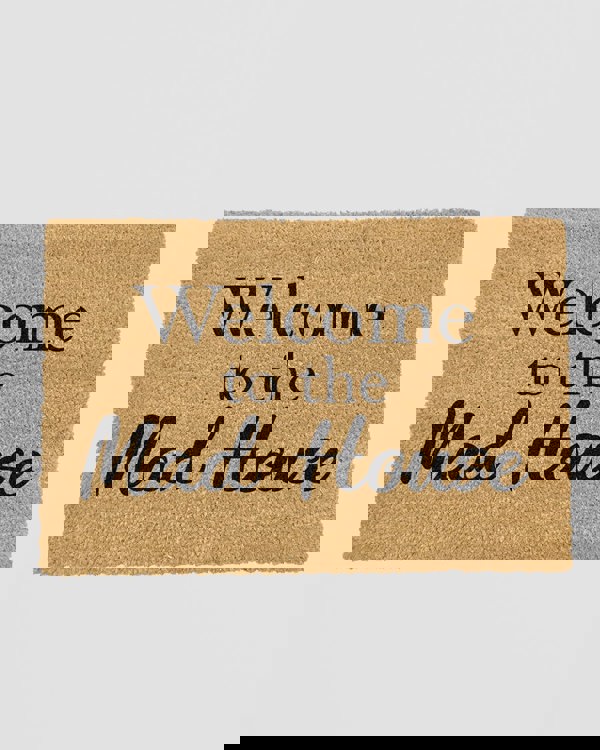 Welcome
to the
Mad House